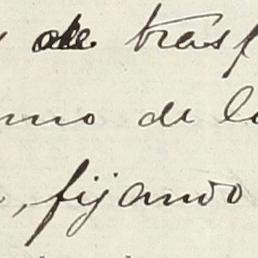 de trasf
mo de l
, fijando